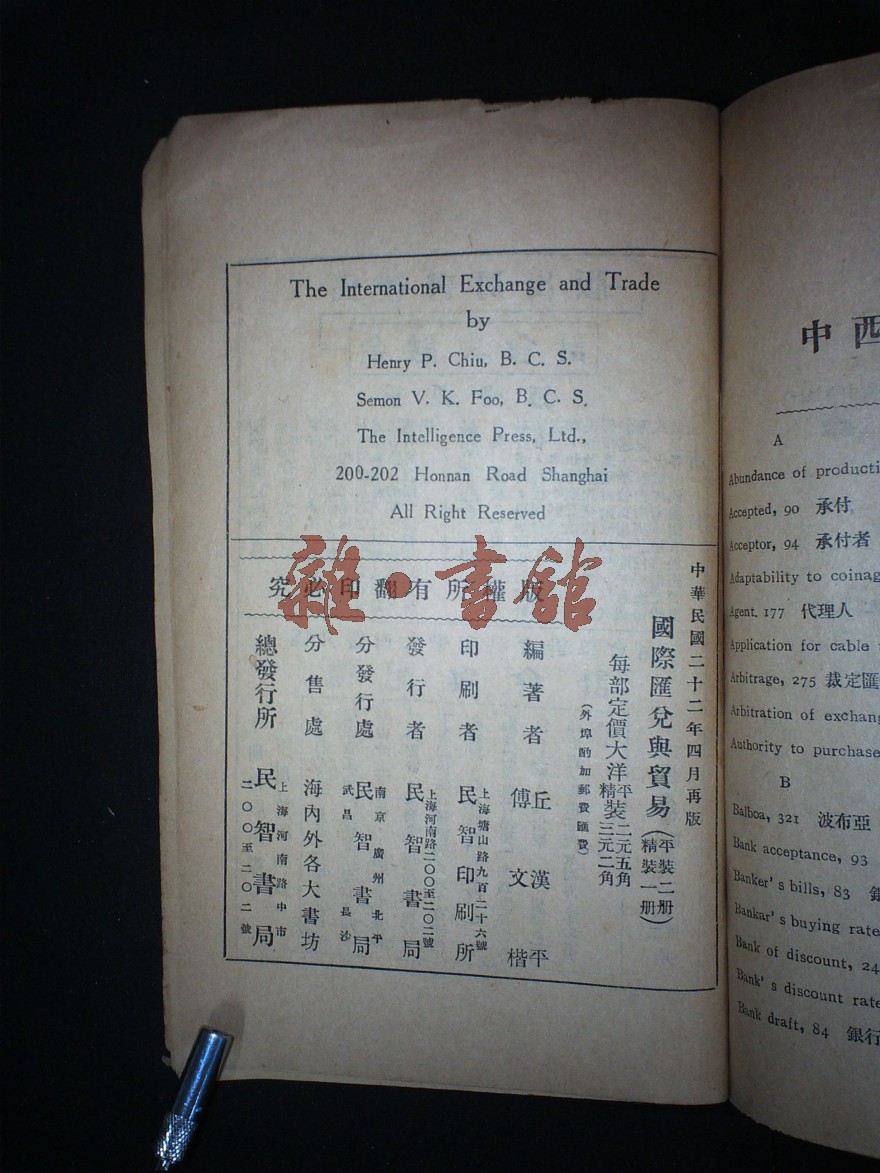 The International Exchange and Trade
by
Henry P. Chiu, B. C. S.
Semon V. K. Foo, B. C. S.
The Intelligence Press, Ltd.,
200-202 Honnan Road Shanghai
All Right Reserved
版權所有翻印必究
雜·書館
中華民國二十二年四月再版
國際匯兌與貿易(平裝二册 精裝一册)
每部定價大洋平裝二元五角 精裝三元二角
(外埠酌加郵費匯費)
編著者 丘漢平 傅文楷
印刷者 上海塘山路九百二十六號 民智印刷所
發行者 上海河南路二〇〇至二〇二號 民智書局
分發行處 南京廣州北平 民智書局 武昌長沙
分售處 海內外各大書坊
總發行所 上海河南路中市 民智書局 二〇〇至二〇二號
中西
A
Abundance of producti
Accepted, 90 承付
Acceptor, 94 承付者
Adaptability to coinag
Agent. 177 代理人
Application for cable
Arbitrage, 275 裁定匯
Arbitration of exchang
Authority to purchase
B
Balboa, 321 波布亞
Bank acceptance, 93
Banker's bills, 83 銀
Bankar's buying rate
Bank of discount, 24
Bank's discount rate
Bank draft, 84 銀行